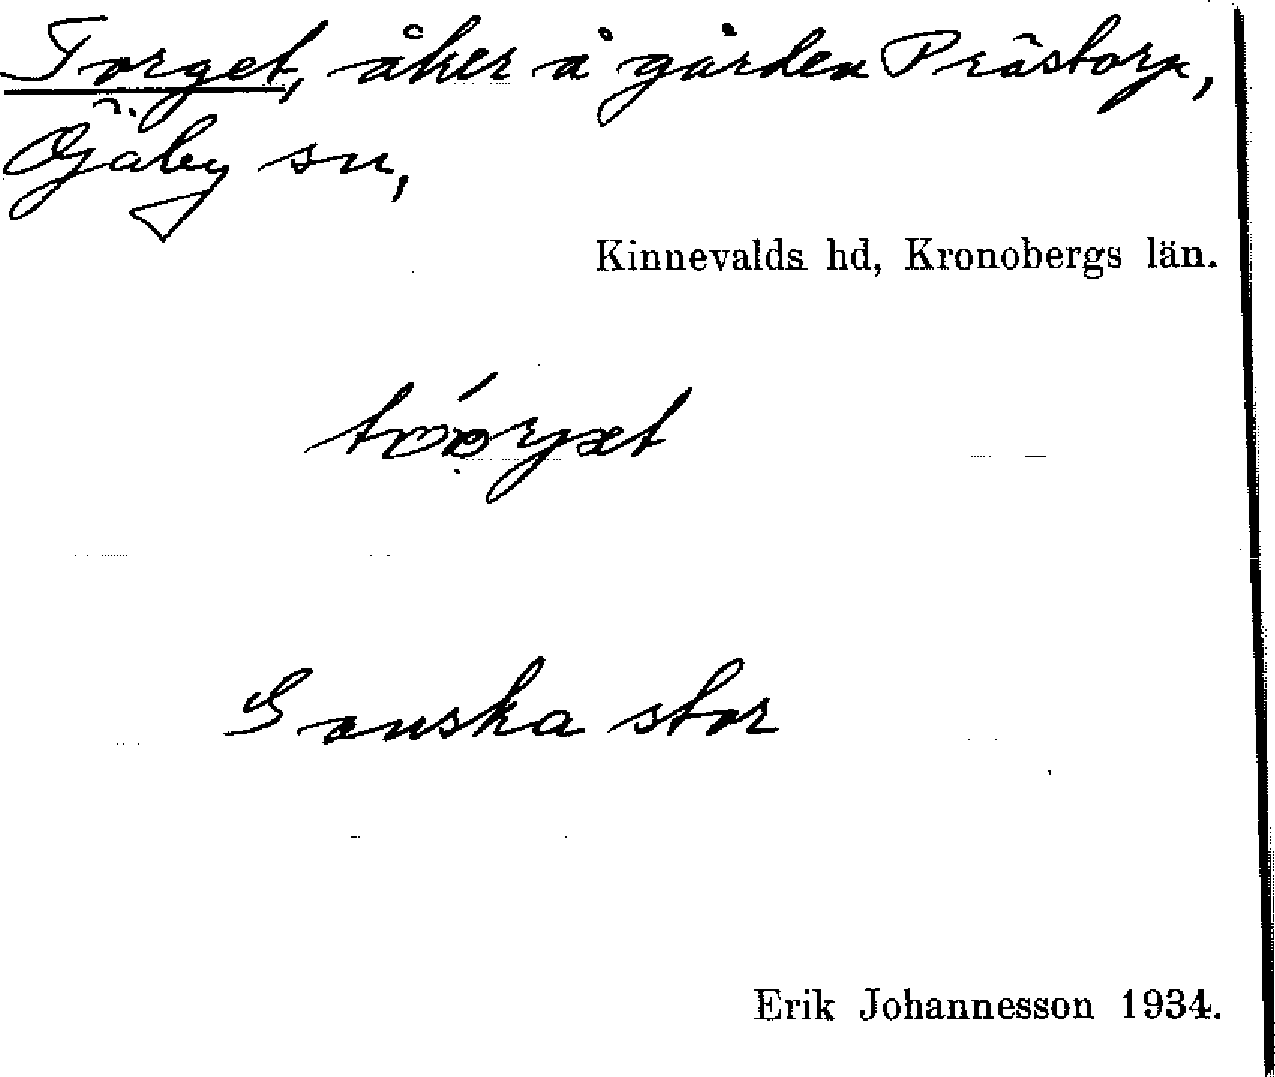 Torget, åker å gården Prästorp,
Öjaby sn,
Kinnevalds hd, Kronobergs län.
Ganska stor
Erik Johannesson 1934.